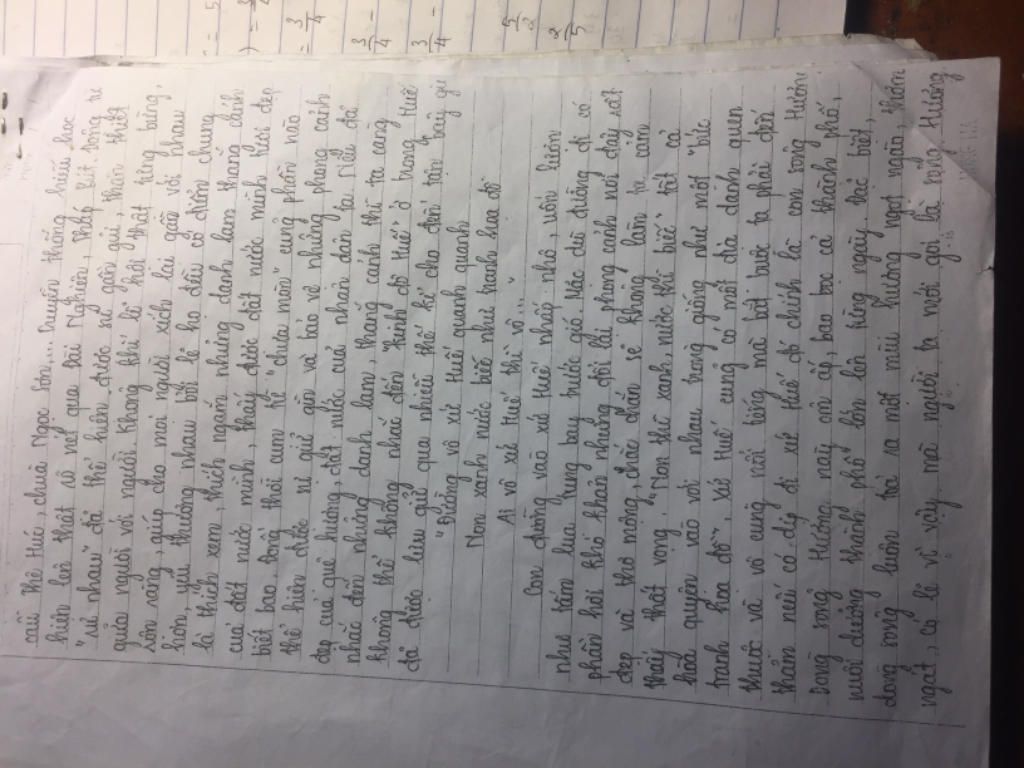 cầu Thê Húc, chùa Ngọc Sơn,... Truyền thống hiếu học
hiện lên thật rõ nét qua Đài Nghiên, Tháp Bút. Không chỉ
"rủ nhau" đã thể hiện được sự gần gũi, thân thiết
giữa người với người. Không khí lễ hội thật tưng bừng,
rộn ràng, giúp cho mọi người xích lại gần với nhau
hơn, yêu thương nhau bởi lẽ họ đều có điểm chung
là thích xem, thích ngắm những danh lam thắng cảnh
của đất nước mình, thấy được đất nước mình tươi đẹp
biết bao. Đồng thời cụm từ "chưa mòn" cũng phần nào
thể hiện được sự giữ gìn và bảo vệ những phong cảnh
đẹp của quê hương, đất nước của nhân dân ta. Nếu đã
nhắc đến những danh lam, thắng cảnh thì ta càng
không thể không nhắc đến "kinh đô Huế" ở trong Huế
đã được lưu giữ qua nhiều thế kỉ cho đến tận bây giờ
"Đường vô xứ Huế quanh quanh
Non xanh nước biếc như tranh họa đồ
Ai vô xứ Huế thì vô..."
Con đường vào xứ Huế nhấp nhô, uốn lượn
như tấm lụa tung bay trước gió. Mặc dù đường đi có
phần hơi khó khăn nhưng đổi lại phong cảnh nơi đây rất
đẹp và thơ mộng, chắc chắn sẽ không làm ta cảm
thấy thất vọng. "Non thì xanh, nước thì biếc" tất cả
hòa quyện vào với nhau trông giống như một "bức
tranh họa đồ", xứ Huế cũng có một địa danh quen
thuộc và vô cùng nổi tiếng mà bắt buộc ta phải đến
thăm nếu có dịp đi xứ Huế đó chính là con sông Hương
Dòng sông Hương này ôm ấp, bao bọc cả thành phố,
nuôi dưỡng thành phố lớn lên từng ngày. Đặc biệt,
dòng sông luôn tỏa ra một mùi hương ngọt ngào, thơm
ngát, có lẽ vì vậy mà người ta mới gọi là sông Hương